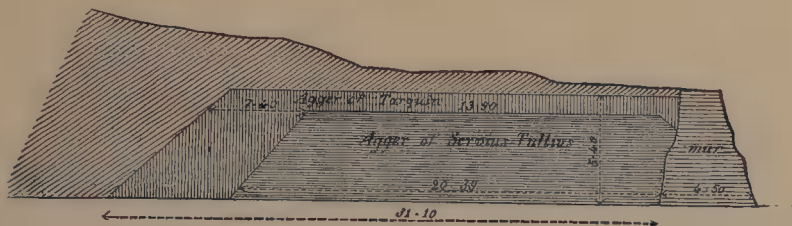 7·40 Agger of Tarquin 13·90
Agger of Servius Tullius
5·40
mur
4·50
31·10